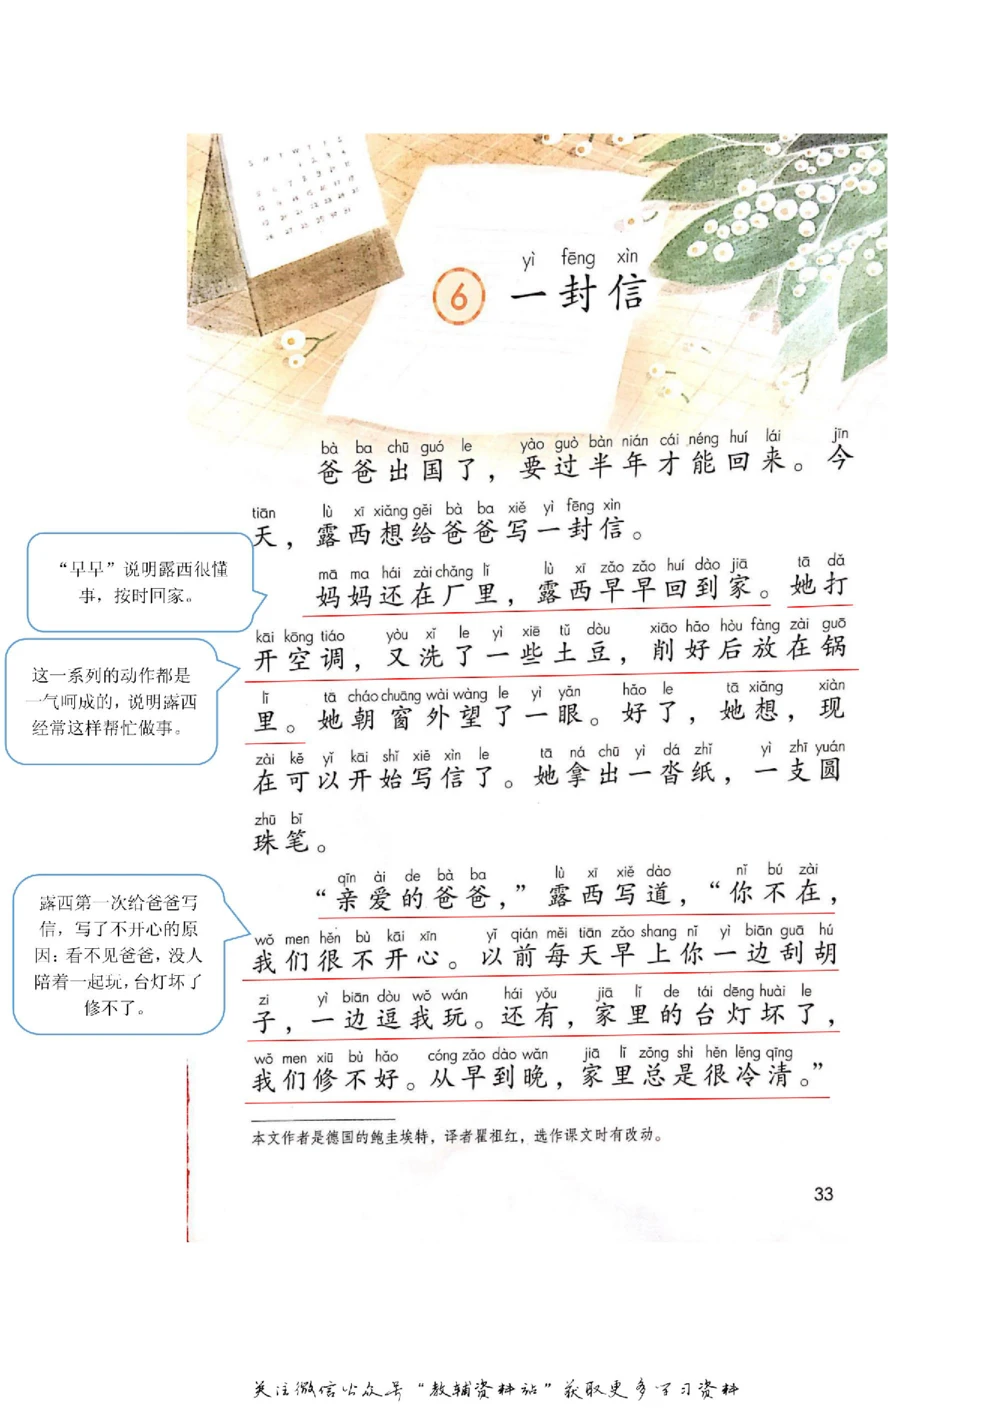 S M T W T F S
yì fēng xìn
6 一封信
bà ba chū guó le yào guò bàn nián cái néng huí lái jīn
爸爸出国了，要过半年才能回来。今
tiān lù xī xiǎng gěi bà ba xiě yì fēng xìn
天，露西想给爸爸写一封信。
“早早”说明露西很懂
事，按时回家。
mā ma hái zài chǎng lǐ lù xī zǎo zǎo huí dào jiā tā dǎ
妈妈还在厂里，露西早早回到家。她打
kāi kōng tiáo yòu xǐ le yì xiē tǔ dòu xiāo hǎo hòu fàng zài guō
开空调，又洗了一些土豆，削好后放在锅
这一系列的动作都是
一气呵成的，说明露西
经常这样帮忙做事。
lǐ tā cháo chuāng wài wàng le yì yǎn hǎo le tā xiǎng xiàn
里。她朝窗外望了一眼。好了，她想，现
zài kě yǐ kāi shǐ xiě xìn le tā ná chū yì dá zhǐ yì zhī yuán
在可以开始写信了。她拿出一沓纸，一支圆
zhū bǐ
珠笔。
qīn ài de bà ba lù xī xiě dào nǐ bú zài
“亲爱的爸爸，”露西写道，“你不在，
露西第一次给爸爸写
信，写了不开心的原
因：看不见爸爸，没人
陪着一起玩，台灯坏了
修不了。
wǒ men hěn bù kāi xīn yǐ qián měi tiān zǎo shang nǐ yì biān guā hú
我们很不开心。以前每天早上你一边刮胡
zi yì biān dòu wǒ wán hái yǒu jiā lǐ de tái dēng huài le
子，一边逗我玩。还有，家里的台灯坏了，
wǒ men xiū bù hǎo cóng zǎo dào wǎn jiā lǐ zǒng shì hěn lěng qīng
我们修不好。从早到晚，家里总是很冷清。”
本文作者是德国的鲍圭埃特，译者瞿祖红，选作课文时有改动。
33
关注微信公众号“教辅资料站”获取更多学习资料